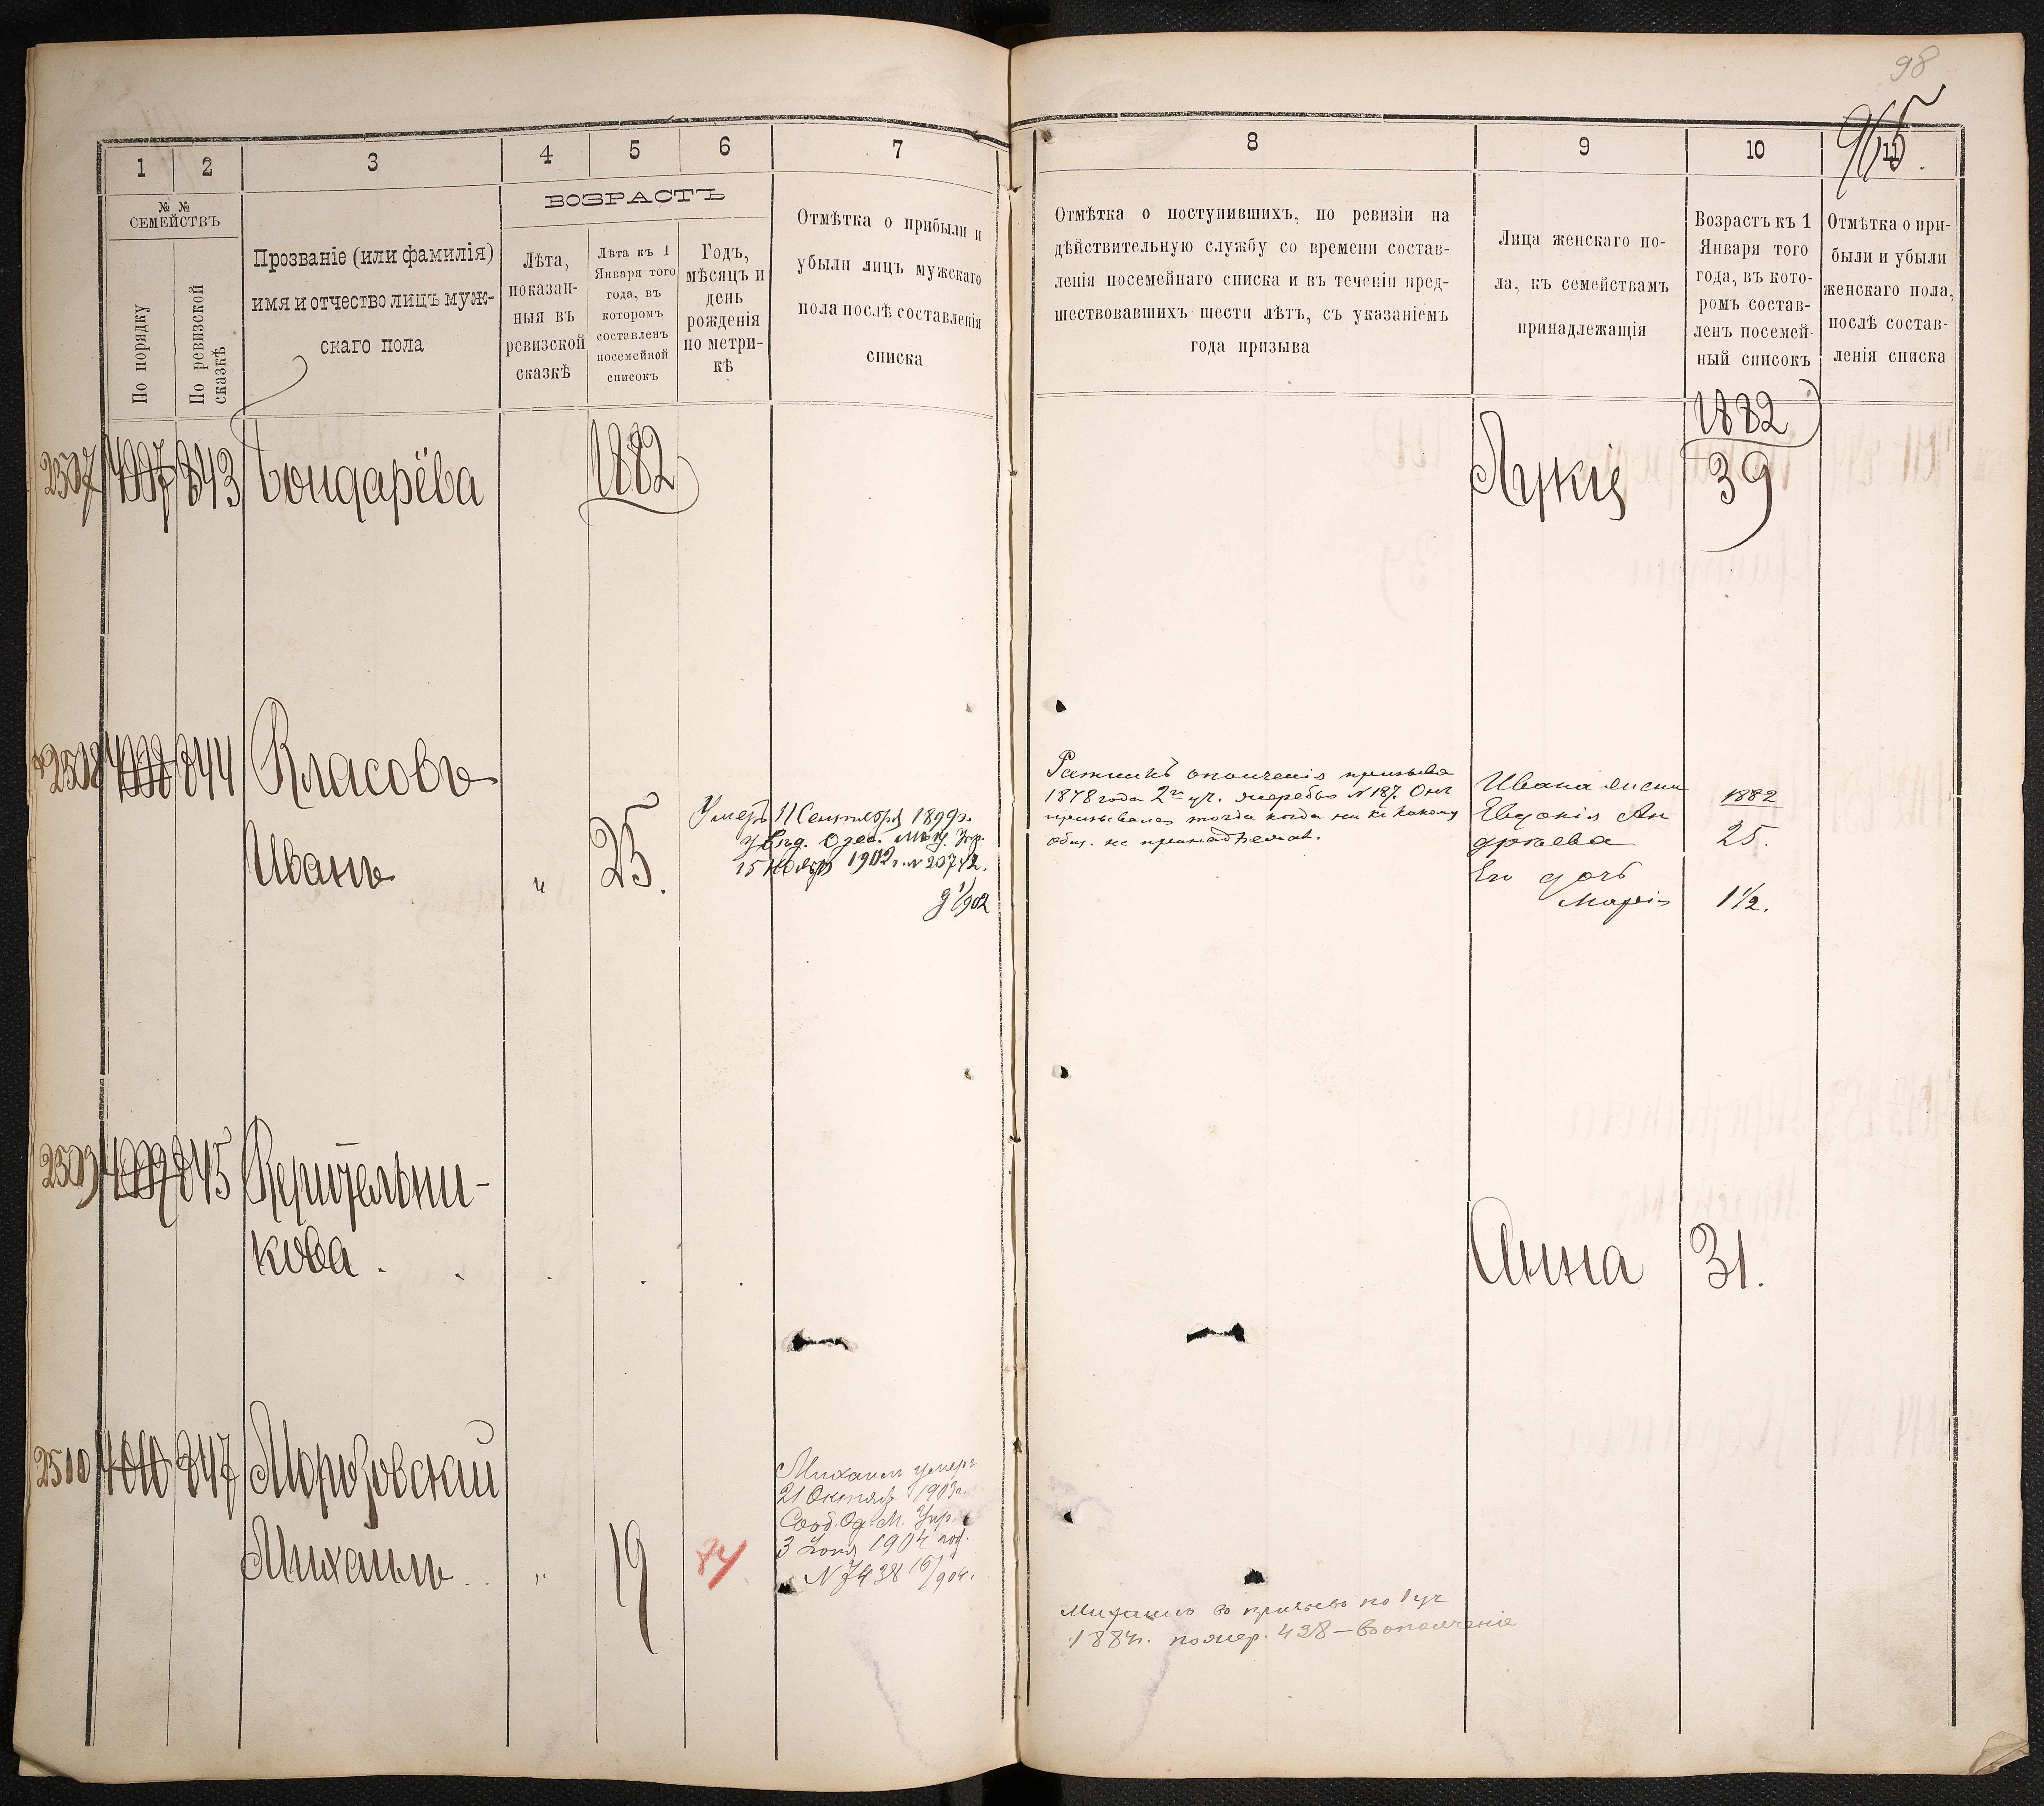 98
965
1
2
3
4
5
6
7
8
9
10
11
№ №
СЕМЕЙСТВЪ
По порядку
По ревизской
сказкѣ
Прозваніе (или фамилія)
имя и отчество лицъ муж-
скаго пола
ВОЗРАСТЪ
Лѣта,
показан-
ныя въ
ревизской
сказкѣ
Лѣта къ 1
Января того
года, въ
которомъ
составленъ
посемейной
списокъ
Годъ,
мѣсяцъ и
день
рожденія
по метри-
кѣ
Отмѣтка о прибыли и
убыли лицъ мужскаго
пола послѣ составленія
списка
Отмѣтка о поступившихъ, по ревизіи на
дѣйствительную службу со времени состав-
ленія посемейнаго списка и въ теченіи пред-
шествовавшихъ шести лѣтъ, съ указаніемъ
года призыва
Лица женскаго по-
ла, къ семействамъ
принадлежащія
Возрастъ къ 1
Января того
года, въ кото-
ромъ состав-
ленъ посемей-
ный списокъ
Отмѣтка о при-
были и убыли
женскаго пола,
послѣ состав-
ленія списка
2507 4007 843 Бондарёва 1882
1882
Лукія 39
2508 4008 844 Власовъ
Иванъ " 25.
Умеръ 11 Сентября 1899г.
увѣд. Одес. Мѣщ. Упр.
15 Ноября 1902 г. № 20742.
Ратникъ ополченія призыва
1878 года 2го уч. жеребья № 187. Онъ
призывался тогда когда ни къ какому
общ. не принадлежал.
Ивана жена
Евдокія Ан
дреева
1882
25.
Его дочь
Марія 1½.
2509 4009 845
кова.
Анна 31.
2510 4010 847 Морозовский
Михаилъ " 19 84
Михаилъ умеръ
21 Октяб 1903г.
Сооб. Од. М. Упр.
3 1904 под.
№ 7438 /904.
Михаилъ въ призывъ по 1 уч
1884г. по жер. 438 — въ ополченіе